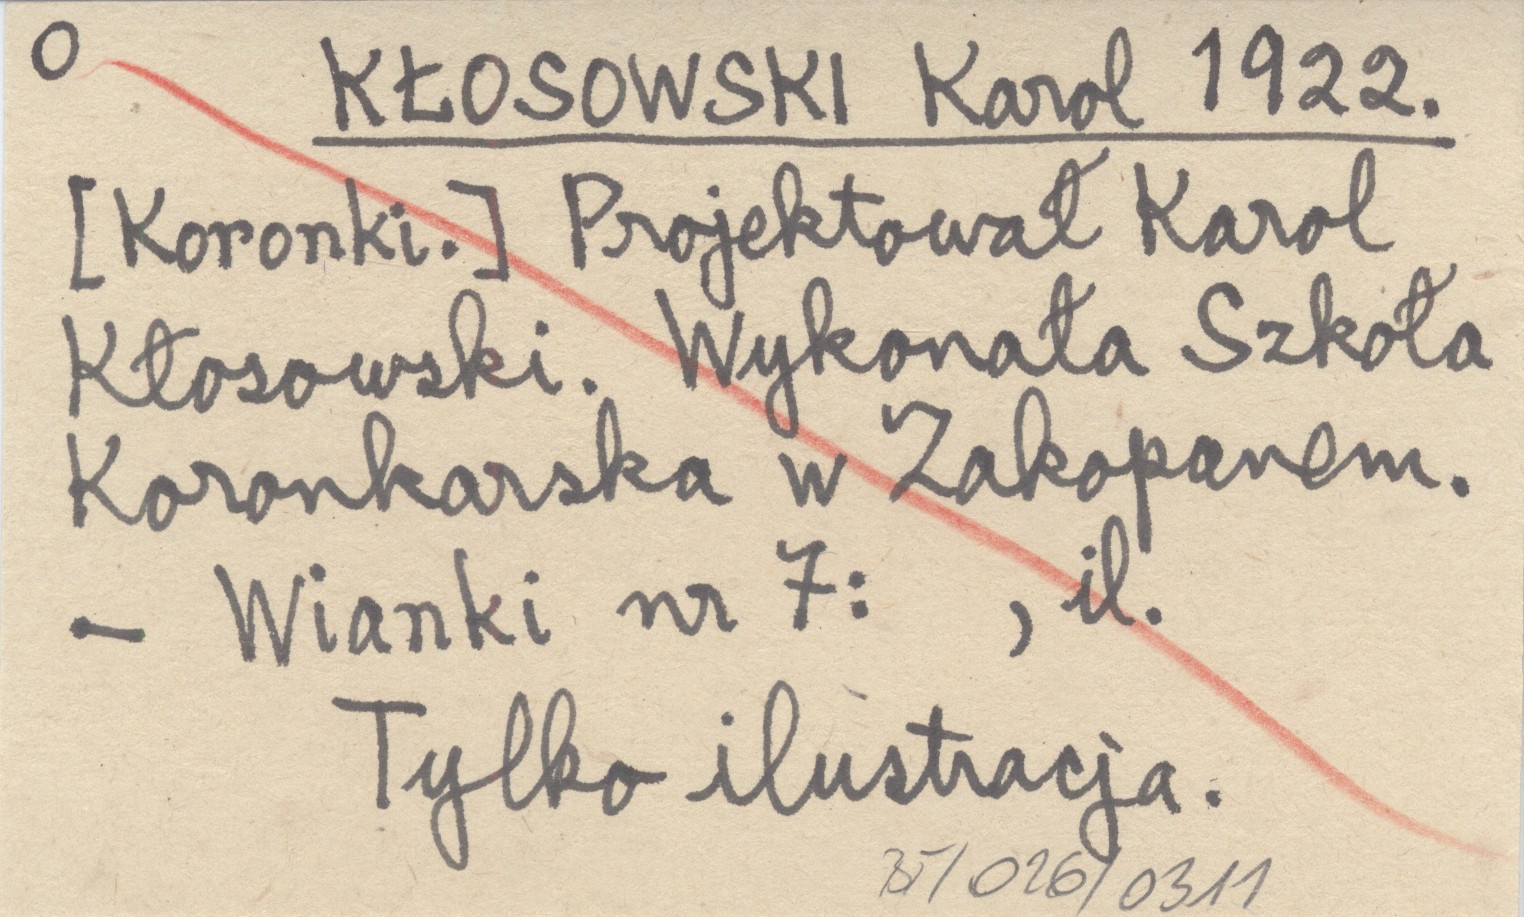 O KŁOSOWSKI Karol 1922.
[Koronki.] Projektował Karol
Kłosowski. Wykonała Szkoła
Koronkarska w Zakopanem.
— Wianki nr 7: , il.
Tylko ilustracja.
/026/0311